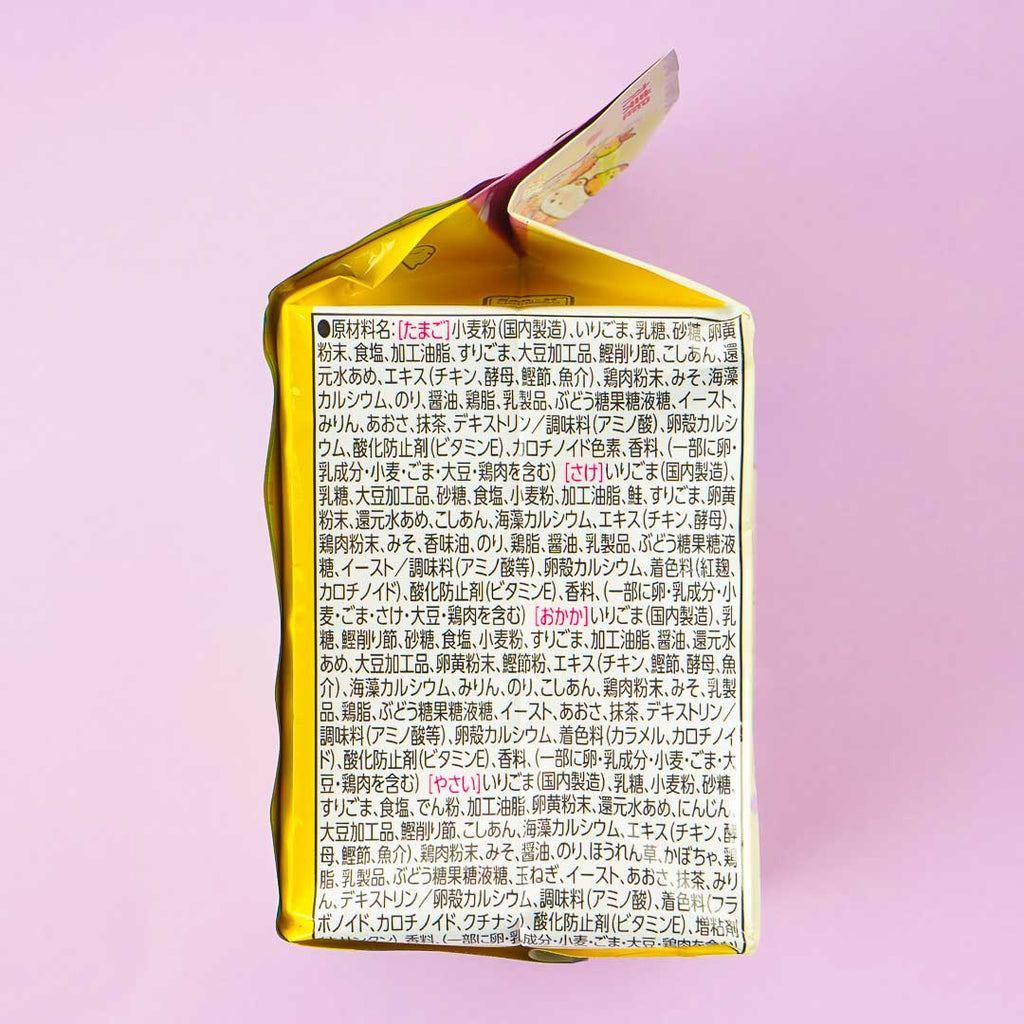 ●原材料名:[たまご]小麦粉(国内製造)、いりごま、乳糖、砂糖、卵黄
粉末、食塩、加工油脂、すりごま、大豆加工品、鰹削り節、こしあん、還
元水あめ、エキス(チキン、酵母、鰹節、魚介)、鶏肉粉末、みそ、海藻
カルシウム、のり、醤油、鶏脂、乳製品、ぶどう糖果糖液糖、イースト、
みりん、あおさ、抹茶、デキストリン/調味料(アミノ酸)、卵殻カルシ
ウム、酸化防止剤(ビタミンE)、カロチノイド色素、香料、(一部に卵・
乳成分・小麦・ごま・大豆・鶏肉を含む) [さけ]いりごま(国内製造)、
乳糖、大豆加工品、砂糖、食塩、小麦粉、加工油脂、鮭、すりごま、卵黄
粉末、還元水あめ、こしあん、海藻カルシウム、エキス(チキン、酵母)、
鶏肉粉末、みそ、香味油、のり、鶏脂、醤油、乳製品、ぶどう糖果糖液
糖、イースト/調味料(アミノ酸等)、卵殻カルシウム、着色料(紅麹、
カロチノイド)、酸化防止剤(ビタミンE)、香料、(一部に卵・乳成分・小
麦・ごま・さけ・大豆・鶏肉を含む) [おかか]いりごま(国内製造)、乳
糖、鰹削り節、砂糖、食塩、小麦粉、すりごま、加工油脂、醤油、還元水
あめ、大豆加工品、卵黄粉末、鰹節粉、エキス(チキン、鰹節、酵母、魚
介)、海藻カルシウム、みりん、のり、こしあん、鶏肉粉末、みそ、乳製
品、鶏脂、ぶどう糖果糖液糖、イースト、あおさ、抹茶、デキストリン/
調味料(アミノ酸等)、卵殻カルシウム、着色料(カラメル、カロチノイ
ド)、酸化防止剤(ビタミンE)、香料、(一部に卵・乳成分・小麦・ごま・大
豆・鶏肉を含む) [やさい]いりごま(国内製造)、乳糖、小麦粉、砂糖、
すりごま、食塩、でん粉、加工油脂、卵黄粉末、還元水あめ、にんじん、
大豆加工品、鰹削り節、こしあん、海藻カルシウム、エキス(チキン、酵
母、鰹節、魚介)、鶏肉粉末、みそ、醤油、のり、ほうれん草、かぼちゃ、鶏
脂、乳製品、ぶどう糖果糖液糖、玉ねぎ、イースト、あおさ、抹茶、みり
ん、デキストリン/卵殻カルシウム、調味料(アミノ酸)、着色料(フラ
ボノイド、カロチノイド、クチナシ)、酸化防止剤(ビタミンE)、増粘剤
(キサンタン)、香料、(一部に卵・乳成分・小麦・ごま・大豆・鶏肉を含む)